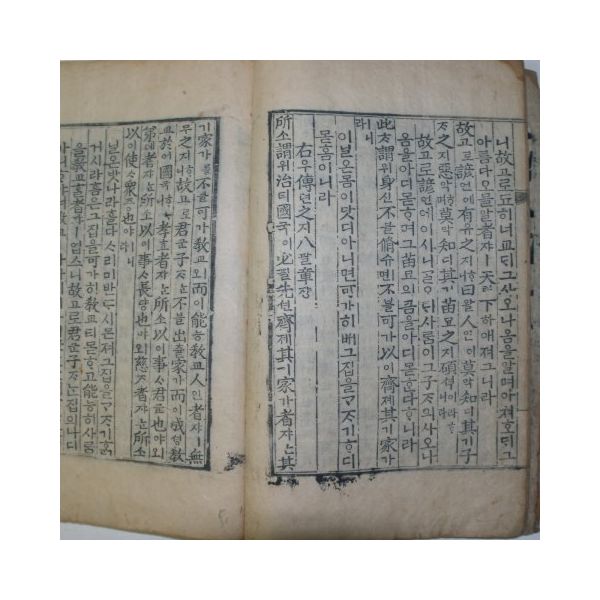 니故고로묘히너교딘그사오나옴을알며아쳐호딘그
아름다오믈알者쟈ㅣ天텬下하애져그니라
故고로諺언에有유之지曰왈人인이莫막知디其기子
ᄌ之지惡악ᄒᆞ며莫막知디其기苗묘之지碩셕이라ᄒᆞ니라
故고로諺언에이시니ᄀᆞᆯ오ᄃᆡ사ᄅᆞᆷ이그子ᄌ의사오나
옴을아디몯ᄒᆞ며그苗묘의큼을아디몯ᄒᆞ다ᄒᆞ니라
此ᄎᆞ謂위身신不블脩슈ㅣ면不블可가以이齊졔其기家가
ㅣ라
이닐온몸이닷디아니면可가히ᄡᅥ그집을ᄀᆞᄌᆞ기ᄒᆞ디
몯홈이니라
右우傳뎐之지八팔章쟝
所소謂위治티國국이必필先션齊졔其기家가者쟈ᄂᆞᆫ其
기家가ᄅᆞᆯ不블可가敎교ㅣ오而이能능敎교人인者쟈ㅣ無
무之지ᄒᆞ니故고로君군子ᄌᆞᄂᆞᆫ不블出츌家가而이成셩敎
교於어國국이니孝효者쟈ᄂᆞᆫ所소以이事ᄉᆞ君군也야ㅣ오
弟뎨者쟈ᄂᆞᆫ所소以이事ᄉᆞ長댱也야ㅣ오慈ᄌᆞ者쟈ᄂᆞᆫ所소
以이使ᄉᆞ衆즁也야ㅣ라
닐온밧나라홀다ᄉᆞ리미반ᄃᆞ시몬져그집을ᄀᆞᄌᆞ기홀
거시라홈은그집을可가히敎교티몯ᄒᆞ고能능히사ᄅᆞᆷ
을敎교ᄒᆞᆯ者쟈ㅣ업스니故고로君군子ᄌᆞᄂᆞᆫ집의나디